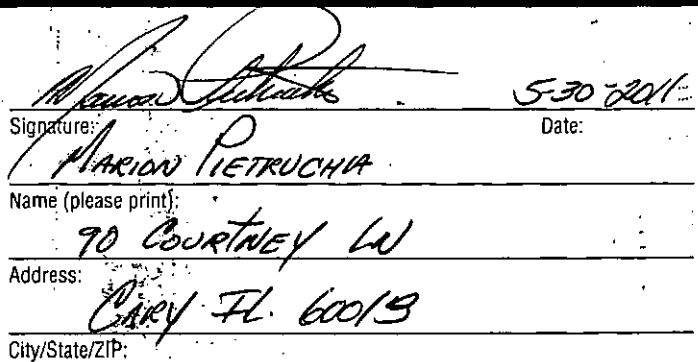 5-30-2011
Signature: Date:
MARION PIETRUCHIA
Name (please print):
90 COURTNEY LN
Address:
CARY IL. 60013
City/State/ZIP: